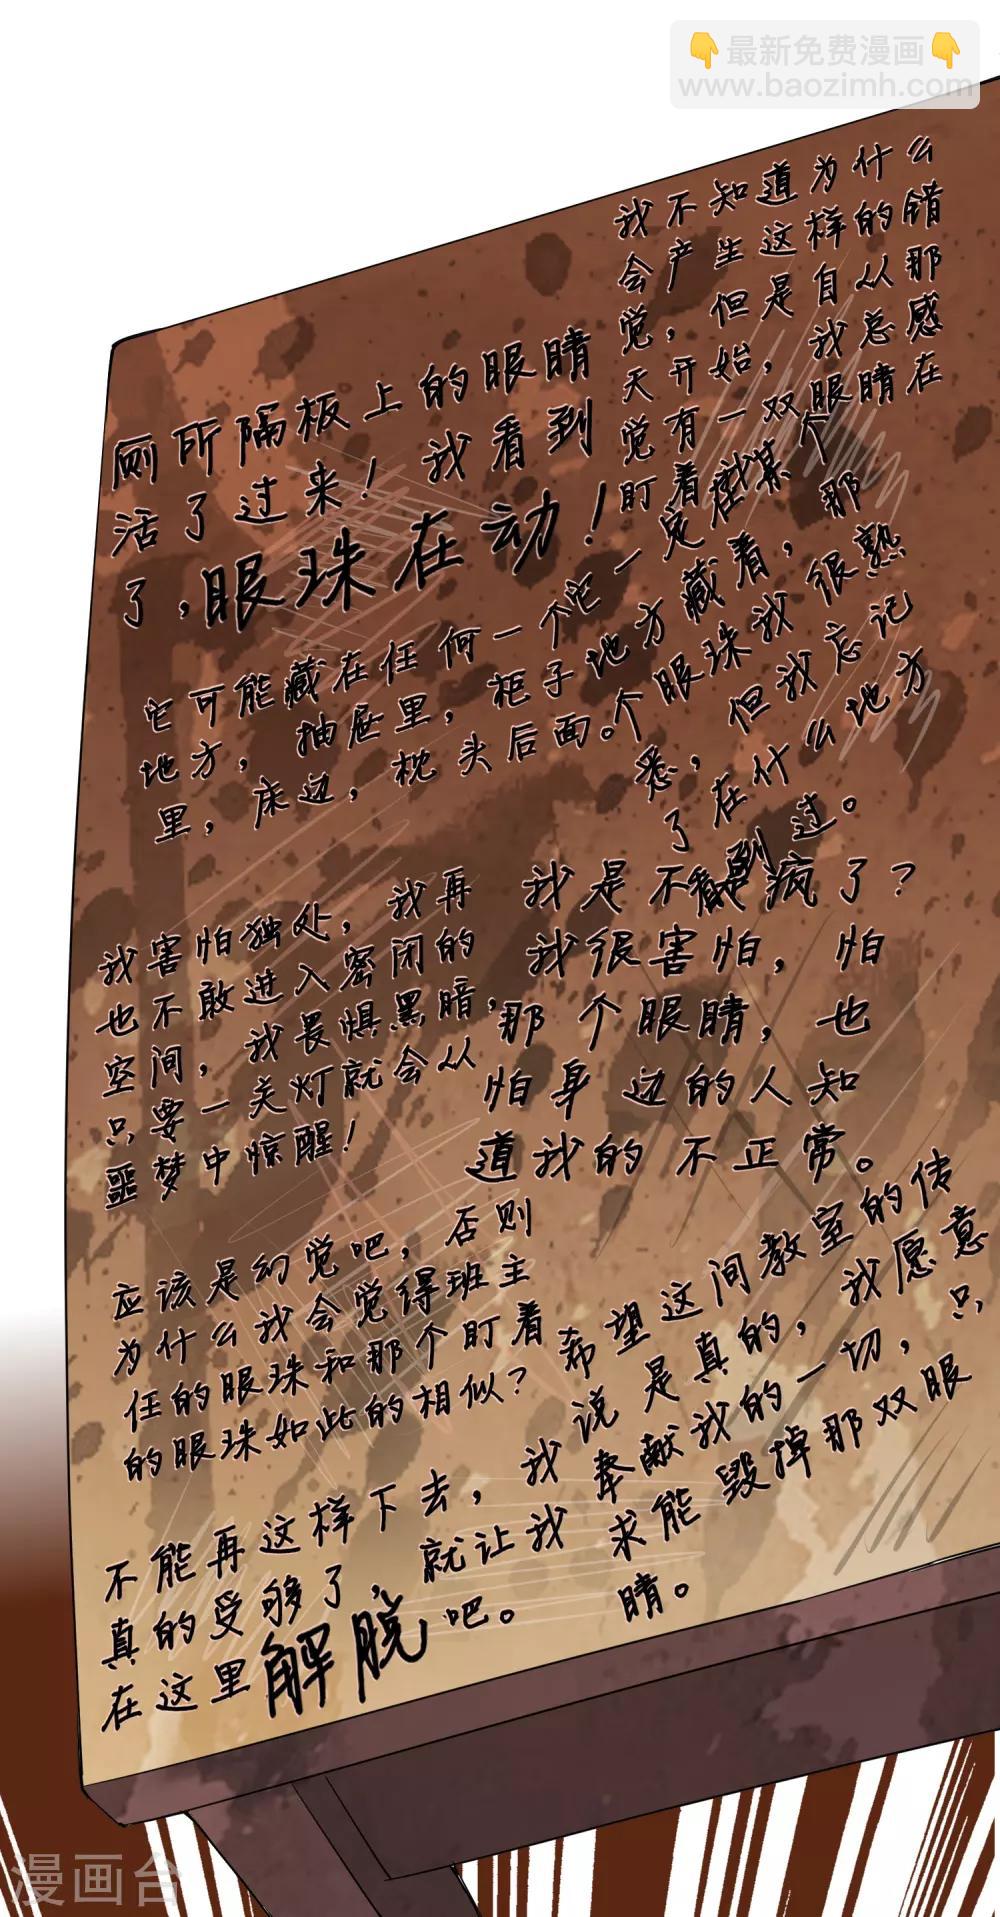 👇最新免费漫画👇
www.baozimh.com
我不知道为什么
会产生这样的错
觉，但是自从那
天开始，我总感
觉有一双眼睛在
盯着我
厕所隔板上的眼睛
活了过来！我看到
了，眼珠在动！
它一定在某个
地方藏着，那
个眼珠我很熟
悉，但我忘记
了在什么地方
看到过。
它可能藏在任何一个
地方，抽屉里，柜子
里，床边，枕头后面。
我是不是疯了？
我很害怕，怕
那个眼睛，也
怕身边的人知
道我的不正常。
我害怕独处，我再
也不敢进入密闭的
空间，我畏惧黑暗，
只要一关灯就会从
噩梦中惊醒！
应该是幻觉吧，否则
为什么我会觉得班主
任的眼珠和那个盯着
的眼珠如此的相似？
希望这间教室的传
说是真的，我愿意
奉献我的一切，只
求能毁掉那双眼
睛。
不能再这样下去，我
真的受够了，就让我
在这里解脱吧。
漫画台